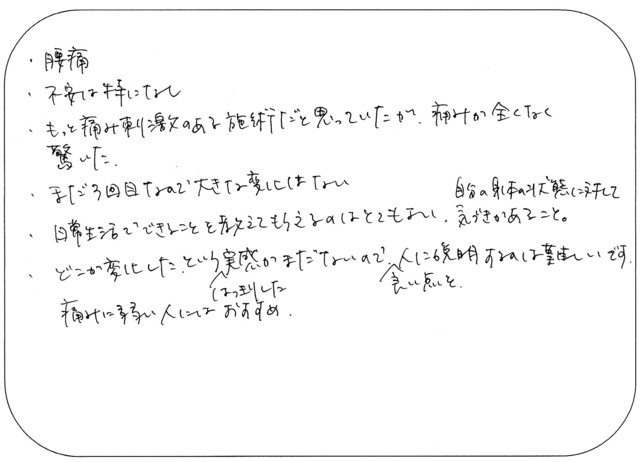 ・腰痛
・不安は特になし
・もっと痛み刺激のある施術だと思っていたが、痛みが全くなく
驚いた。
・まだ3回目なので大きな変化はない
・日常生活でできることを教えてもらえるのはとてもよい。自分の身体の状態に対して
気づきがあること。
・どこか変化した、というはっきりした実感がまだないので、人に良い点を説明するのは難しいです。
痛みに弱い人にはおすすめ。